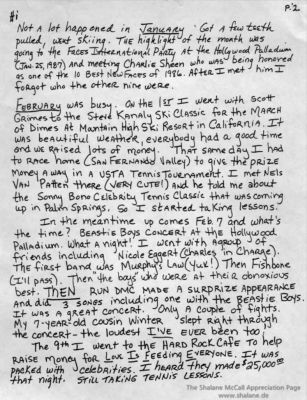 #1
P. 2
Not a lot happened in January. Got a few teeth
pulled, went skiing. The highlight of the month was
going to the Faces International Party at the Hollywood Palladium
(Jan. 25, 1987) and meeting Charlie Sheen who was being honored
as one of the 10 Best New Faces of 1986. After I met him I
forgot who the other nine were.
February was busy. On the 1st I went with Scott
Grimes to the Steve Kanaly Ski Classic for the March
of Dimes at Mountain High Ski Resort in California. It
was beautiful weather, everybody had a good time
and we raised lots of money. That same day I had
to race home (San Fernando Valley) to give the prize
money away in a USTA Tennis Tournament. I met Nels
Van Patten there (very cute!) and he told me about
the Sonny Bono Celebrity Tennis Classic that was coming
up in Palm Springs. So I started taking lessons.
In the meantime up comes Feb. 7 and what's
the time? Beastie Boys concert at the Hollywood
Palladium. What a night! I went with a group of
friends including Nicole Eggert (Charles in Charge).
The first band was Murphy's Law (yuk!) Then Fishbone
(I'll pass). Then the boys who were at their obnoxious
best. Then Run DMC made a surprise appearance
and did 3 songs including one with the Beastie Boys.
It was a great concert. Only a couple of fights.
My 7-year-old cousin Winter slept right through
the concert - the loudest I've ever been too!
The 9th I went to the Hard Rock Cafe to help
raise money for Love Is Feeding Everyone. It was
packed with celebrities. I heard they made $25,000.00
that night. Still taking tennis lessons.
The Shalane McCall Appreciation Page
www.shalane.de